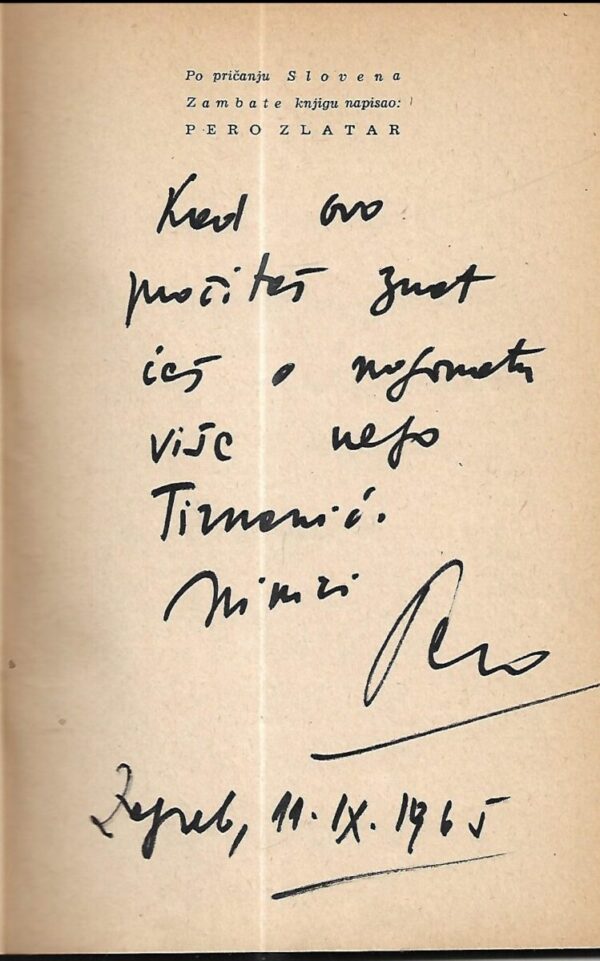 Po pričanju Slovena
Zambate knjigu napisao:
PERO ZLATAR
Kad ovo
pročitaš znat
ćeš o nogometu
više nego
Tirnanić.
Pero
Zagreb, 11. IX. 1965